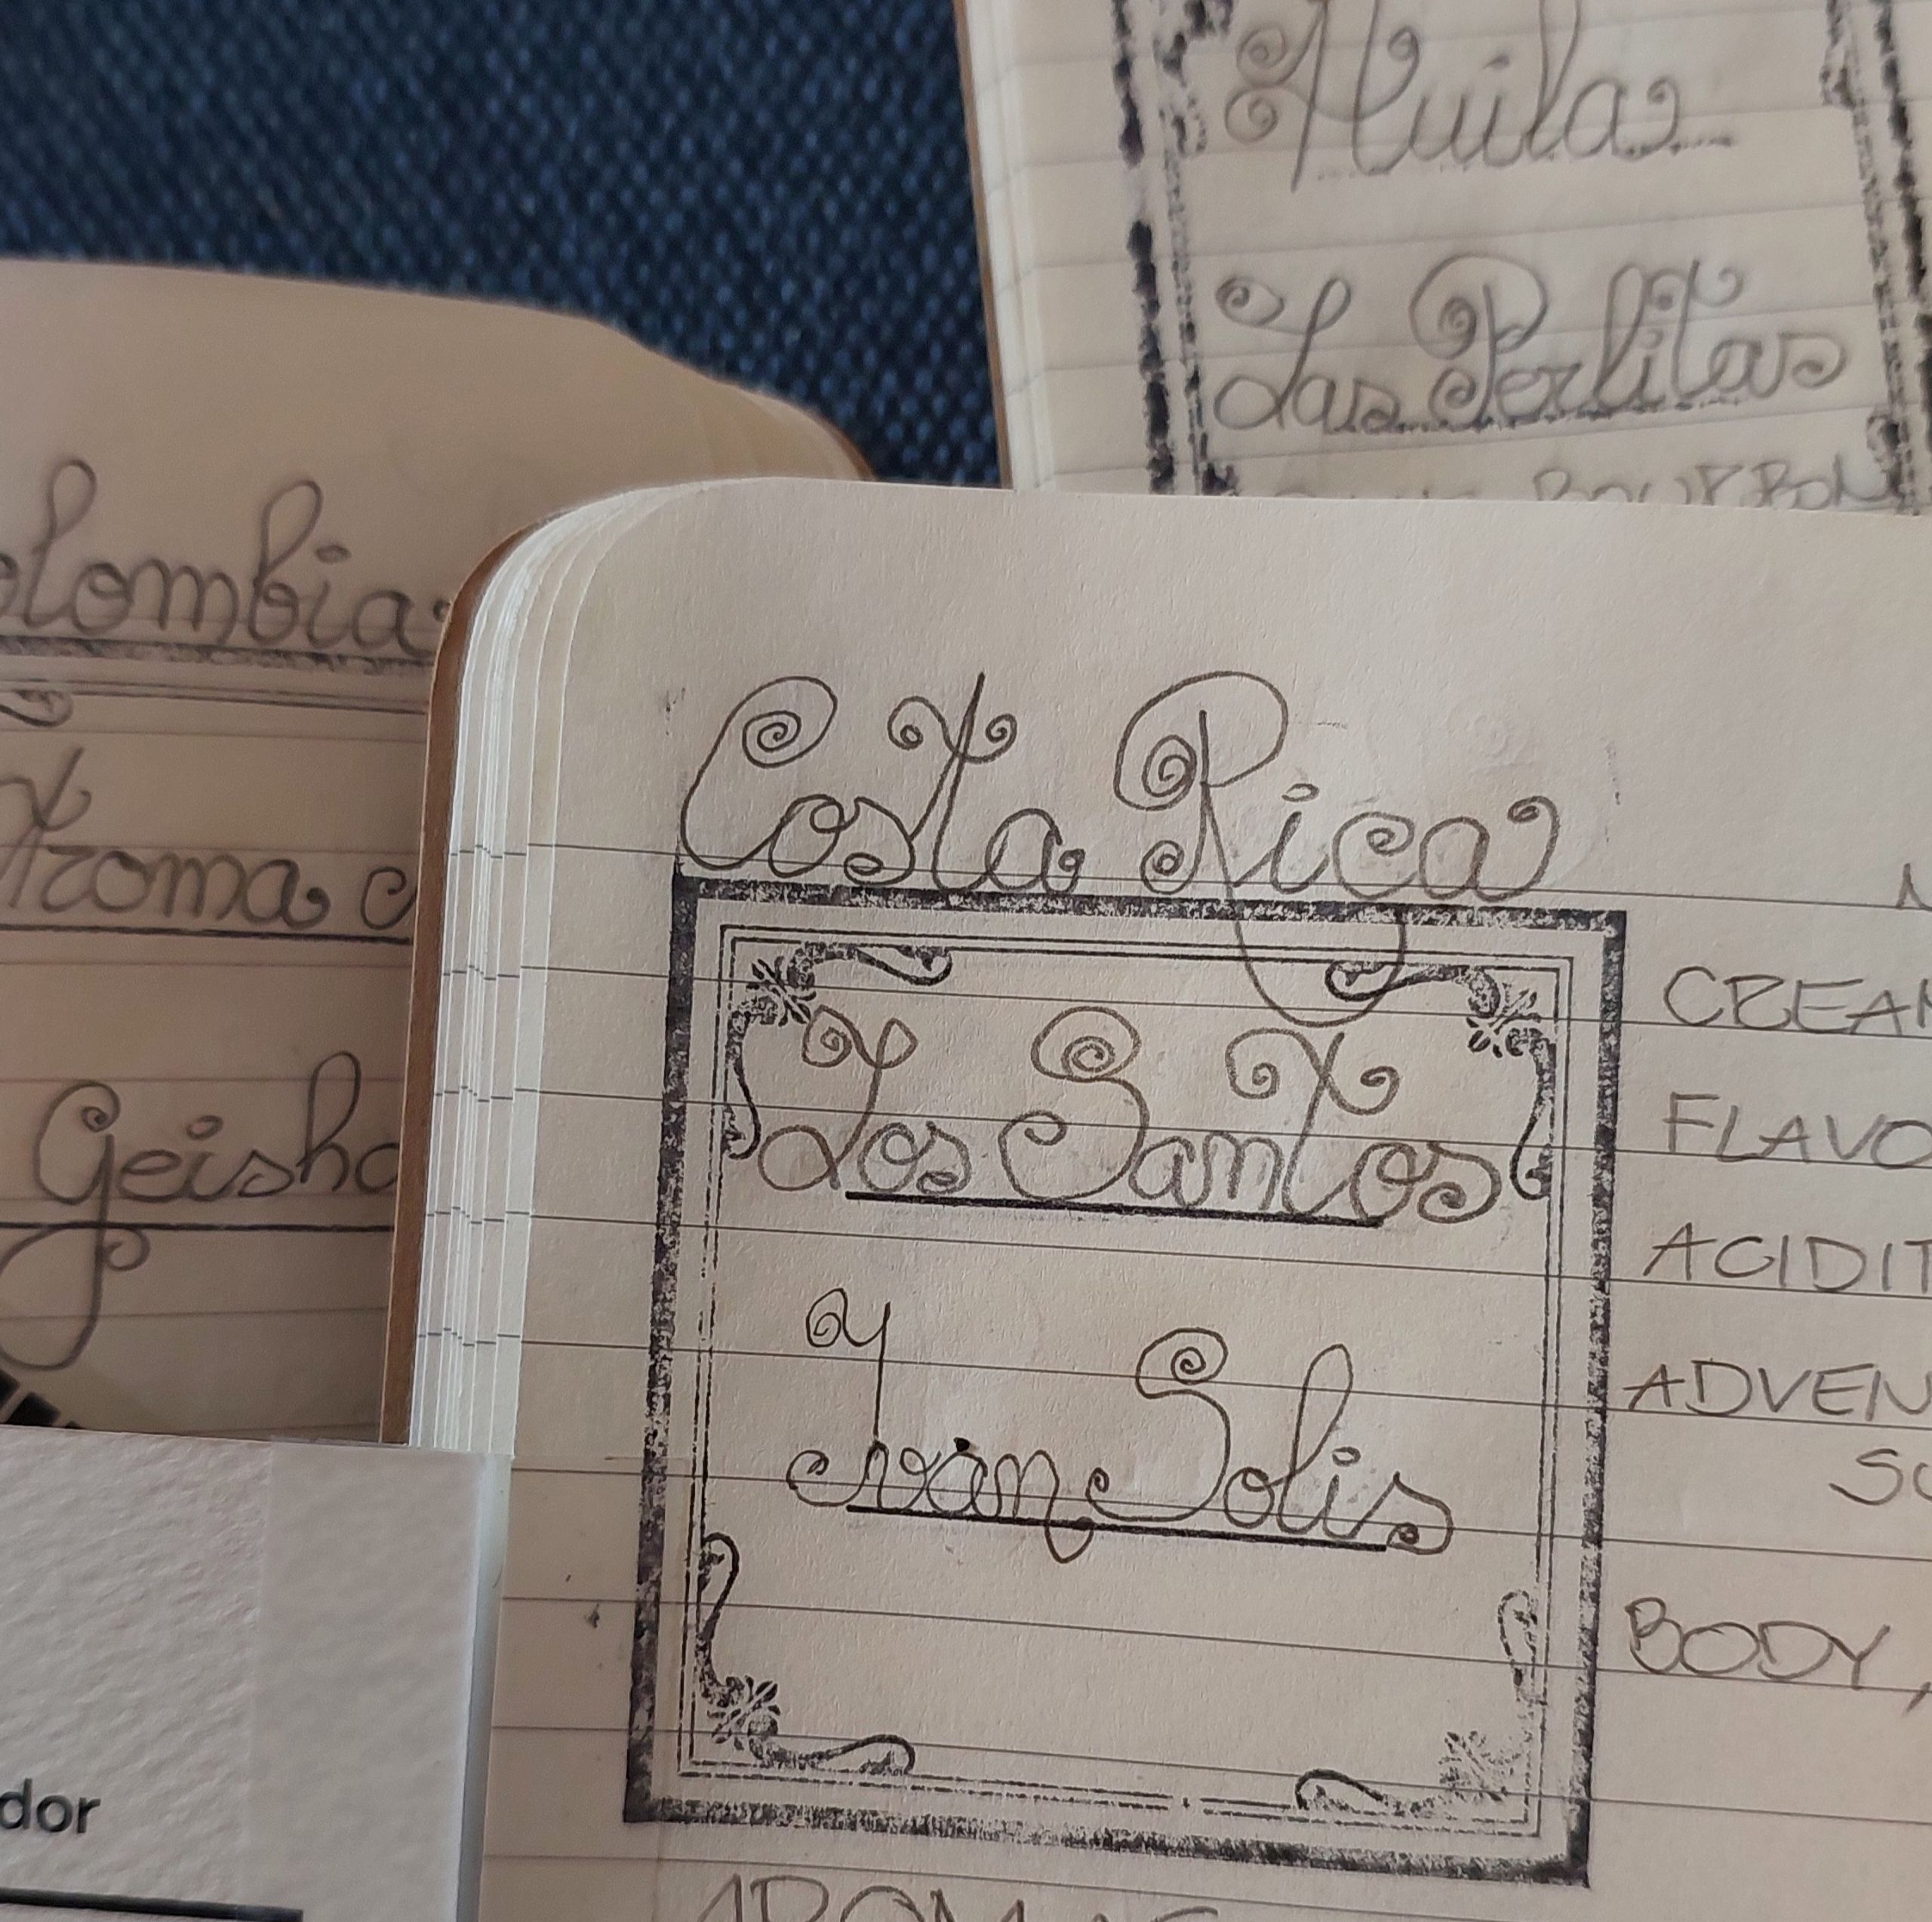 Huila
Las Perlitas
BOURBON
olombia
Aroma c
Geisha
Costa Rica
Los Santos
Iván Solis
CREAM
FLAVO
ACIDIT
ADVEN
SU
BODY,
dor
AROMAS